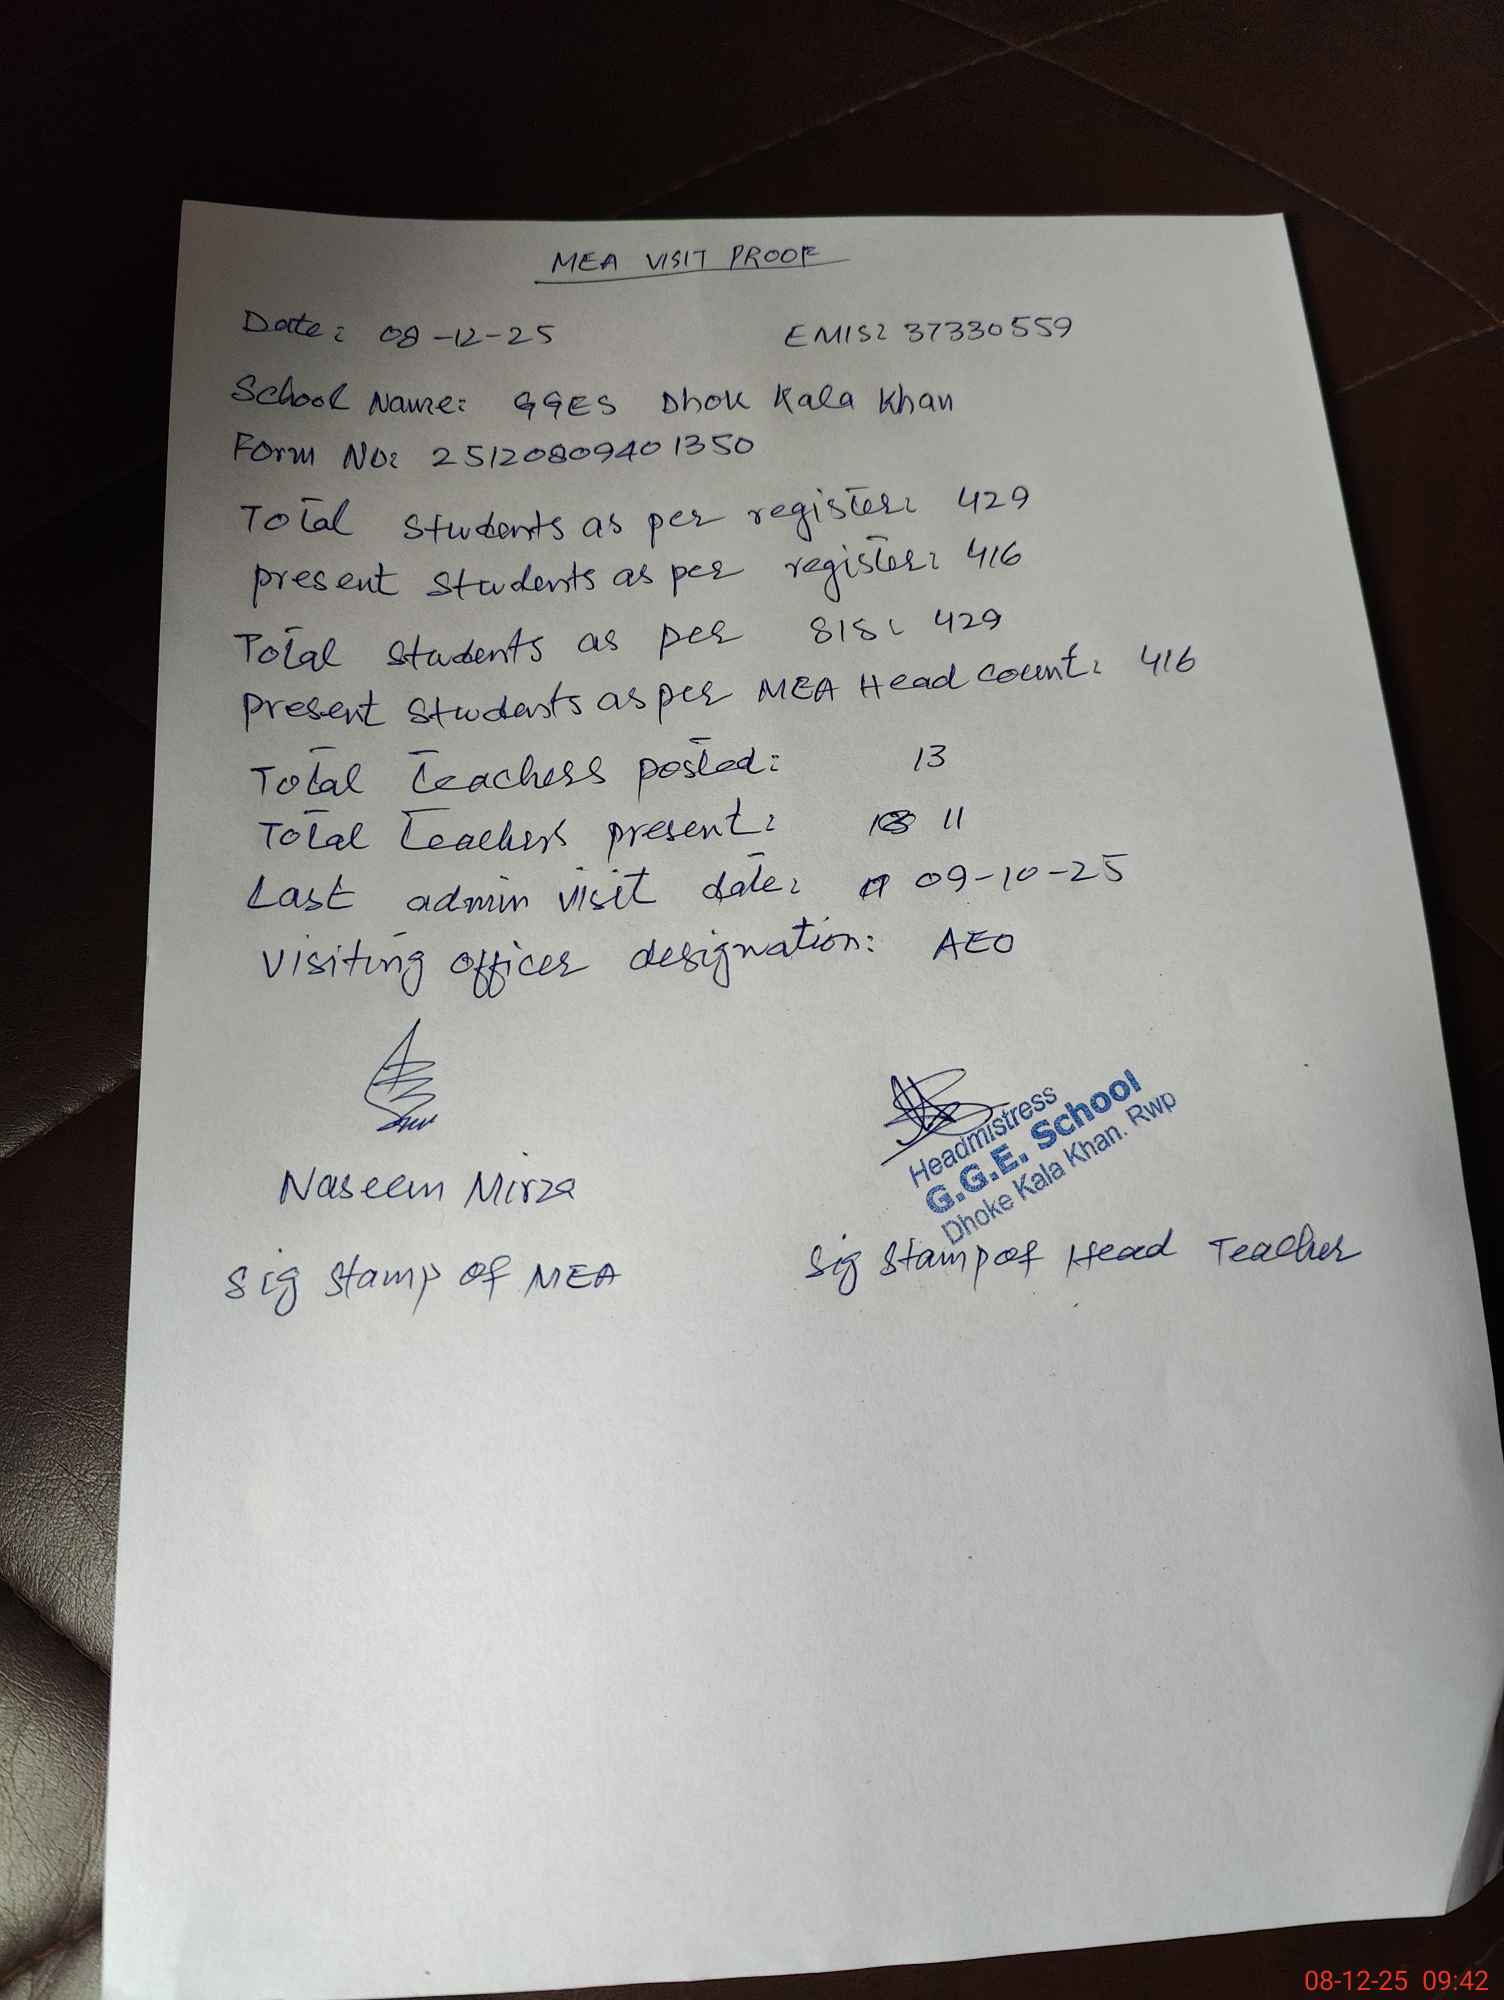 MEA VISIT PROOF
Date: 08-12-25 EMIS: 37330559
School Name: GGES Dhok Kala Khan
Form No: 25120809401350
Total students as per register: 429
present students as per register: 416
Total students as per SIS: 429
present students as per MEA Head count: 416
Total teachers posted: 13
Total teachers present: 11
Last admin visit date: 09-10-25
visiting officer designation: AEO
Headmistress
G.G.E. School
Dhoke Kala Khan. Rwp
Naseem Mirza
Sig stamp of MEA
Sig stamp of Head Teacher
08-12-25 09:42